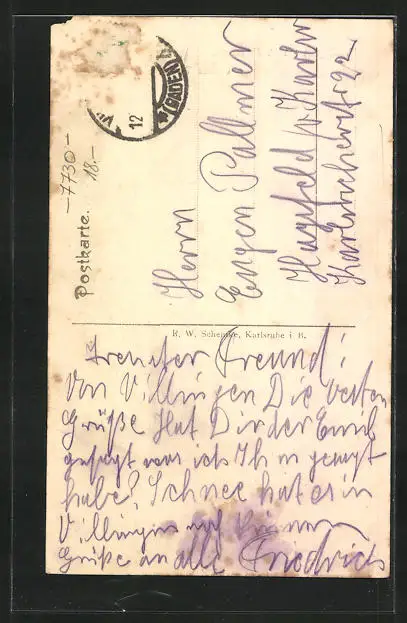 -7730-
18.-
Postkarte.
(BADEN)
12
Herrn
Eugen Pallmer
Hagsfeld b/ Karlsr
Karlsruherstr 92
R. W. Schemke, Karlsruhe i B.
Freund!
Von Villingen Die besten
Grüße Hat Dir der Emil
gesagt was ich Ihm gesagt
habe? Schnee hat es in
Villingen
Grüße an alle Friedrich